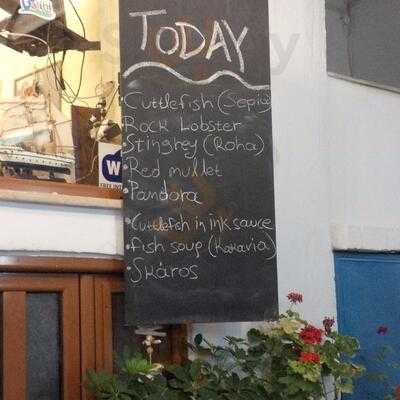 TODAY
• Cuttlefish (Sepia)
Rock Lobster
• Stinghey (Roha)
• Red mullet
• Pandora
• Cuttlefish in ink sauce
• fish soup (Kakavia)
• Skáros
W